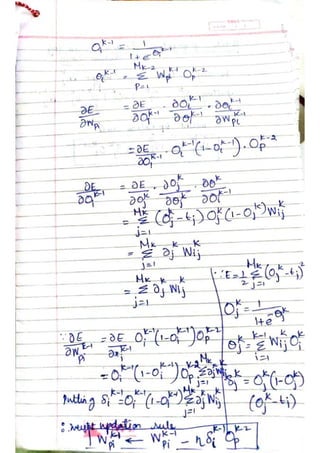 O_i^{k-1} = 1 / (1+e^{-θ_i^{k-1}})
θ_i^{k-1} = Σ_{p=1}^{M_{k-2}} W_{pi}^{k-1} O_p^{k-2}
∂E/∂W_{pi} = ∂E/∂O_i^{k-1} · ∂O_i^{k-1}/∂θ_i^{k-1} · ∂θ_i^{k-1}/∂W_{pi}^{k-1}
= ∂E/∂O_i^{k-1} · O_i^{k-1}(1-O_i^{k-1}) · O_p^{k-2}
∂E/∂O_i^{k-1} = ∂E/∂O_j^k · ∂O_j^k/∂θ_j^k · ∂θ_j^k/∂O_i^{k-1}
= Σ_{j=1}^{M_k} (O_j^k - t_j) O_j^k (1-O_j^k) W_{ij}^k
= Σ_{j=1}^{M_k} ∂_j^k W_{ij}^k
= Σ_{j=1}^{M_k} ∂_j^k W_{ij}^k
∵ E = 1/2 Σ_{j=1}^{M_k} (O_j^k - t_j)^2
O_j^k = 1 / (1+e^{-θ_j^k})
θ_j^k = Σ_{i=1}^{k-1} W_{ij}^k O_i^k
∵ ∂E/∂W_{pi}^{k-1} = ∂E/∂x_i^{k-1} O_i^{k-1}(1-O_i^{k-1}) O_p^{k-2}
= O_i^{k-1}(1-O_i^{k-1}) O_p^{k-2} Σ_{j=1}^{M_k} ∂_j^k W_{ij}^k
δ_j^k = O_j^k (1-O_j^k)
(O_j^k - t_j)
Putting δ_i^{k-1} = O_i^{k-1}(1-O_i^{k-1}) Σ_{j=1}^{M_k} ∂_j^k W_{ij}^k
∴ weight updation rule
W_{pi}^{k-1} ← W_{pi}^{k-1} - η δ_i^{k-1} O_p^{k-2}